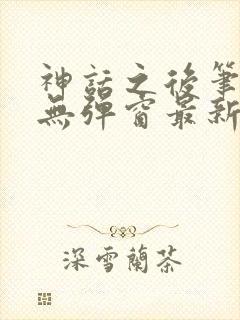 神話之後筆
無彈窗最新
深雪蘭茶